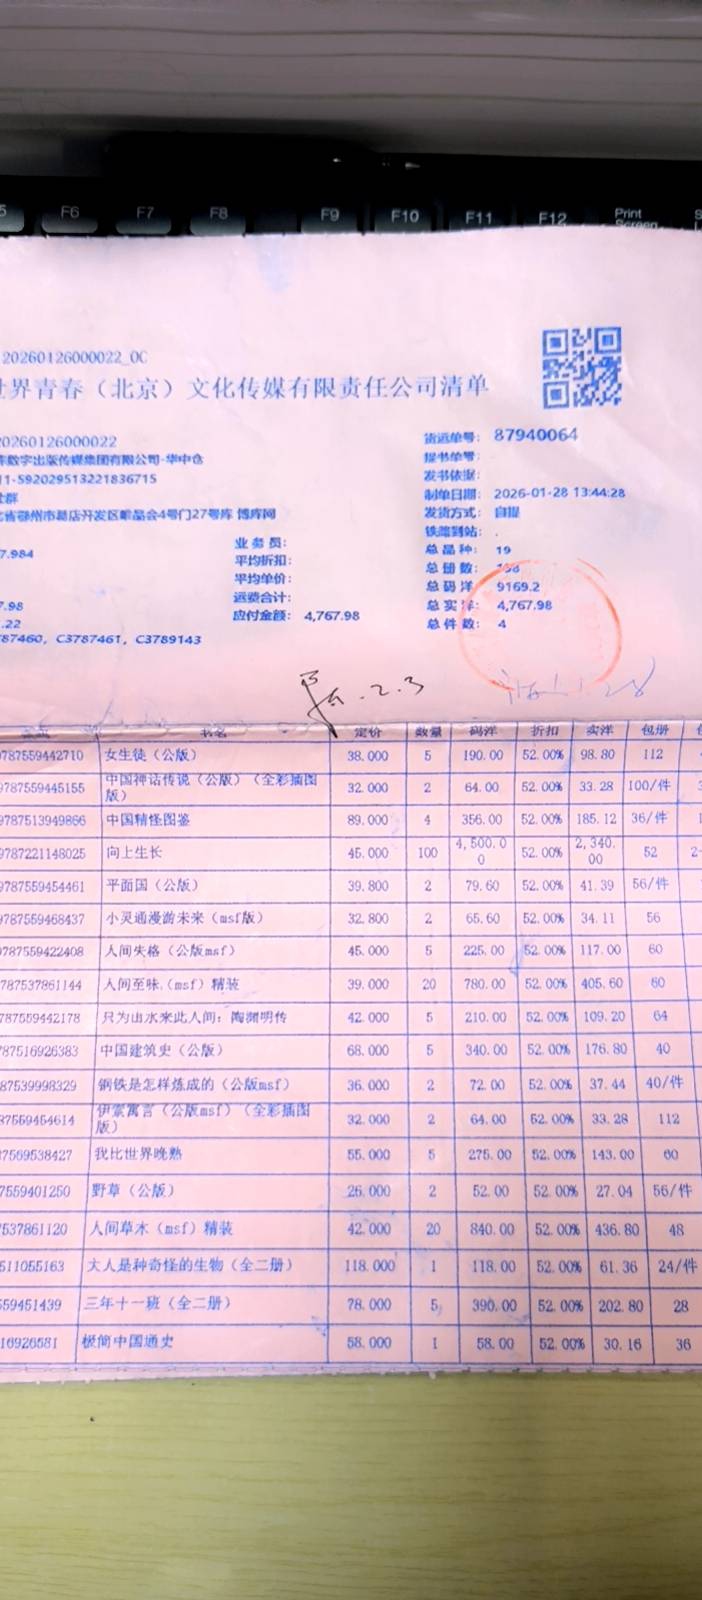 F6 F7 F8 F9 F10 F11 F12 Print Screen
20260126000022_0C
世界青春（北京）文化传媒有限责任公司清单
20260126000022
库数字出版传媒集团有限公司-华中仓
11-592029513221836715
社群
省鄂州市葛店开发区唯品会4号门27号库 博库网
7.984
7.98
.22
787460, C3787461, C3789143
业务员：
平均折扣：
平均单价：
运费合计：
应付金额： 4,767.98
货运单号： 87940064
提书单号：
发书依据：
制单日期： 2026-01-28 13:44:28
发货方式： 自提
铁路到站： .
总品种： 19
总册数： 198
总码洋： 9169.2
总实洋： 4,767.98
总件数： 4
.2.3
书名 定价 数量 码洋 折扣 实洋 包册
9787559442710 女生徒（公版） 38.000 5 190.00 52.00% 98.80 112
9787559445155 中国神话传说（公版）（全彩插图版） 32.000 2 64.00 52.00% 33.28 100/件
9787513949866 中国精怪图鉴 89.000 4 356.00 52.00% 185.12 36/件
9787221148025 向上生长 45.000 100 4,500.00 52.00% 2,340.00 52
9787559454461 平面国（公版） 39.800 2 79.60 52.00% 41.39 56/件
9787559468437 小灵通漫游未来（msf版） 32.800 2 65.60 52.00% 34.11 56
9787559422408 人间失格（公版msf） 45.000 5 225.00 52.00% 117.00 60
787537861144 人间至味.（msf）精装 39.000 20 780.00 52.00% 405.60 60
787559442178 只为山水来此人间：陶渊明传 42.000 5 210.00 52.00% 109.20 64
787516926383 中国建筑史（公版） 68.000 5 340.00 52.00% 176.80 40
87539998329 钢铁是怎样炼成的（公版msf） 36.000 2 72.00 52.00% 37.44 40/件
87559454614 伊索寓言（公版msf）（全彩插图版） 32.000 2 64.00 52.00% 33.28 112
7569538427 我比世界晚熟 55.000 5 275.00 52.00% 143.00 60
7559401250 野草（公版） 26.000 2 52.00 52.00% 27.04 56/件
537861120 人间草木（msf）精装 42.000 20 840.00 52.00% 436.80 48
511055163 大人是种奇怪的生物（全二册） 118.000 1 118.00 52.00% 61.36 24/件
559451439 三年十一班（全二册） 78.000 5 390.00 52.00% 202.80 28
16926581 极简中国通史 58.000 1 58.00 52.00% 30.16 36